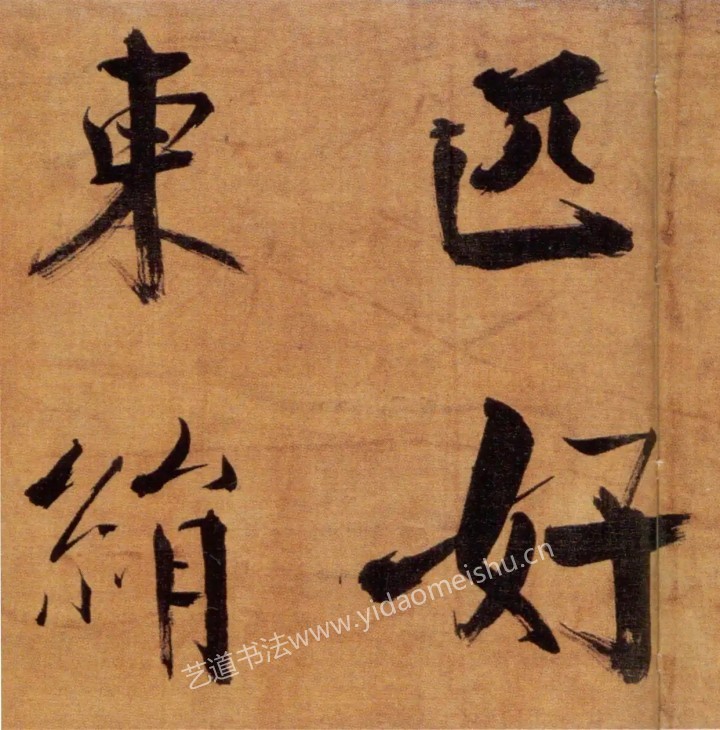 匹好
東絹
艺道书法www.yidaomeishu.cn